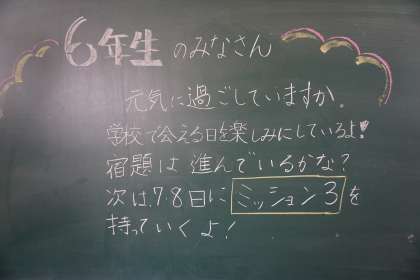 6年生のみなさん
元気に過ごしていますか。
学校で会える日を楽しみにしているよ!
宿題は進んでいるかな?
次は、7・8日にミッション3を
持っていくよ!